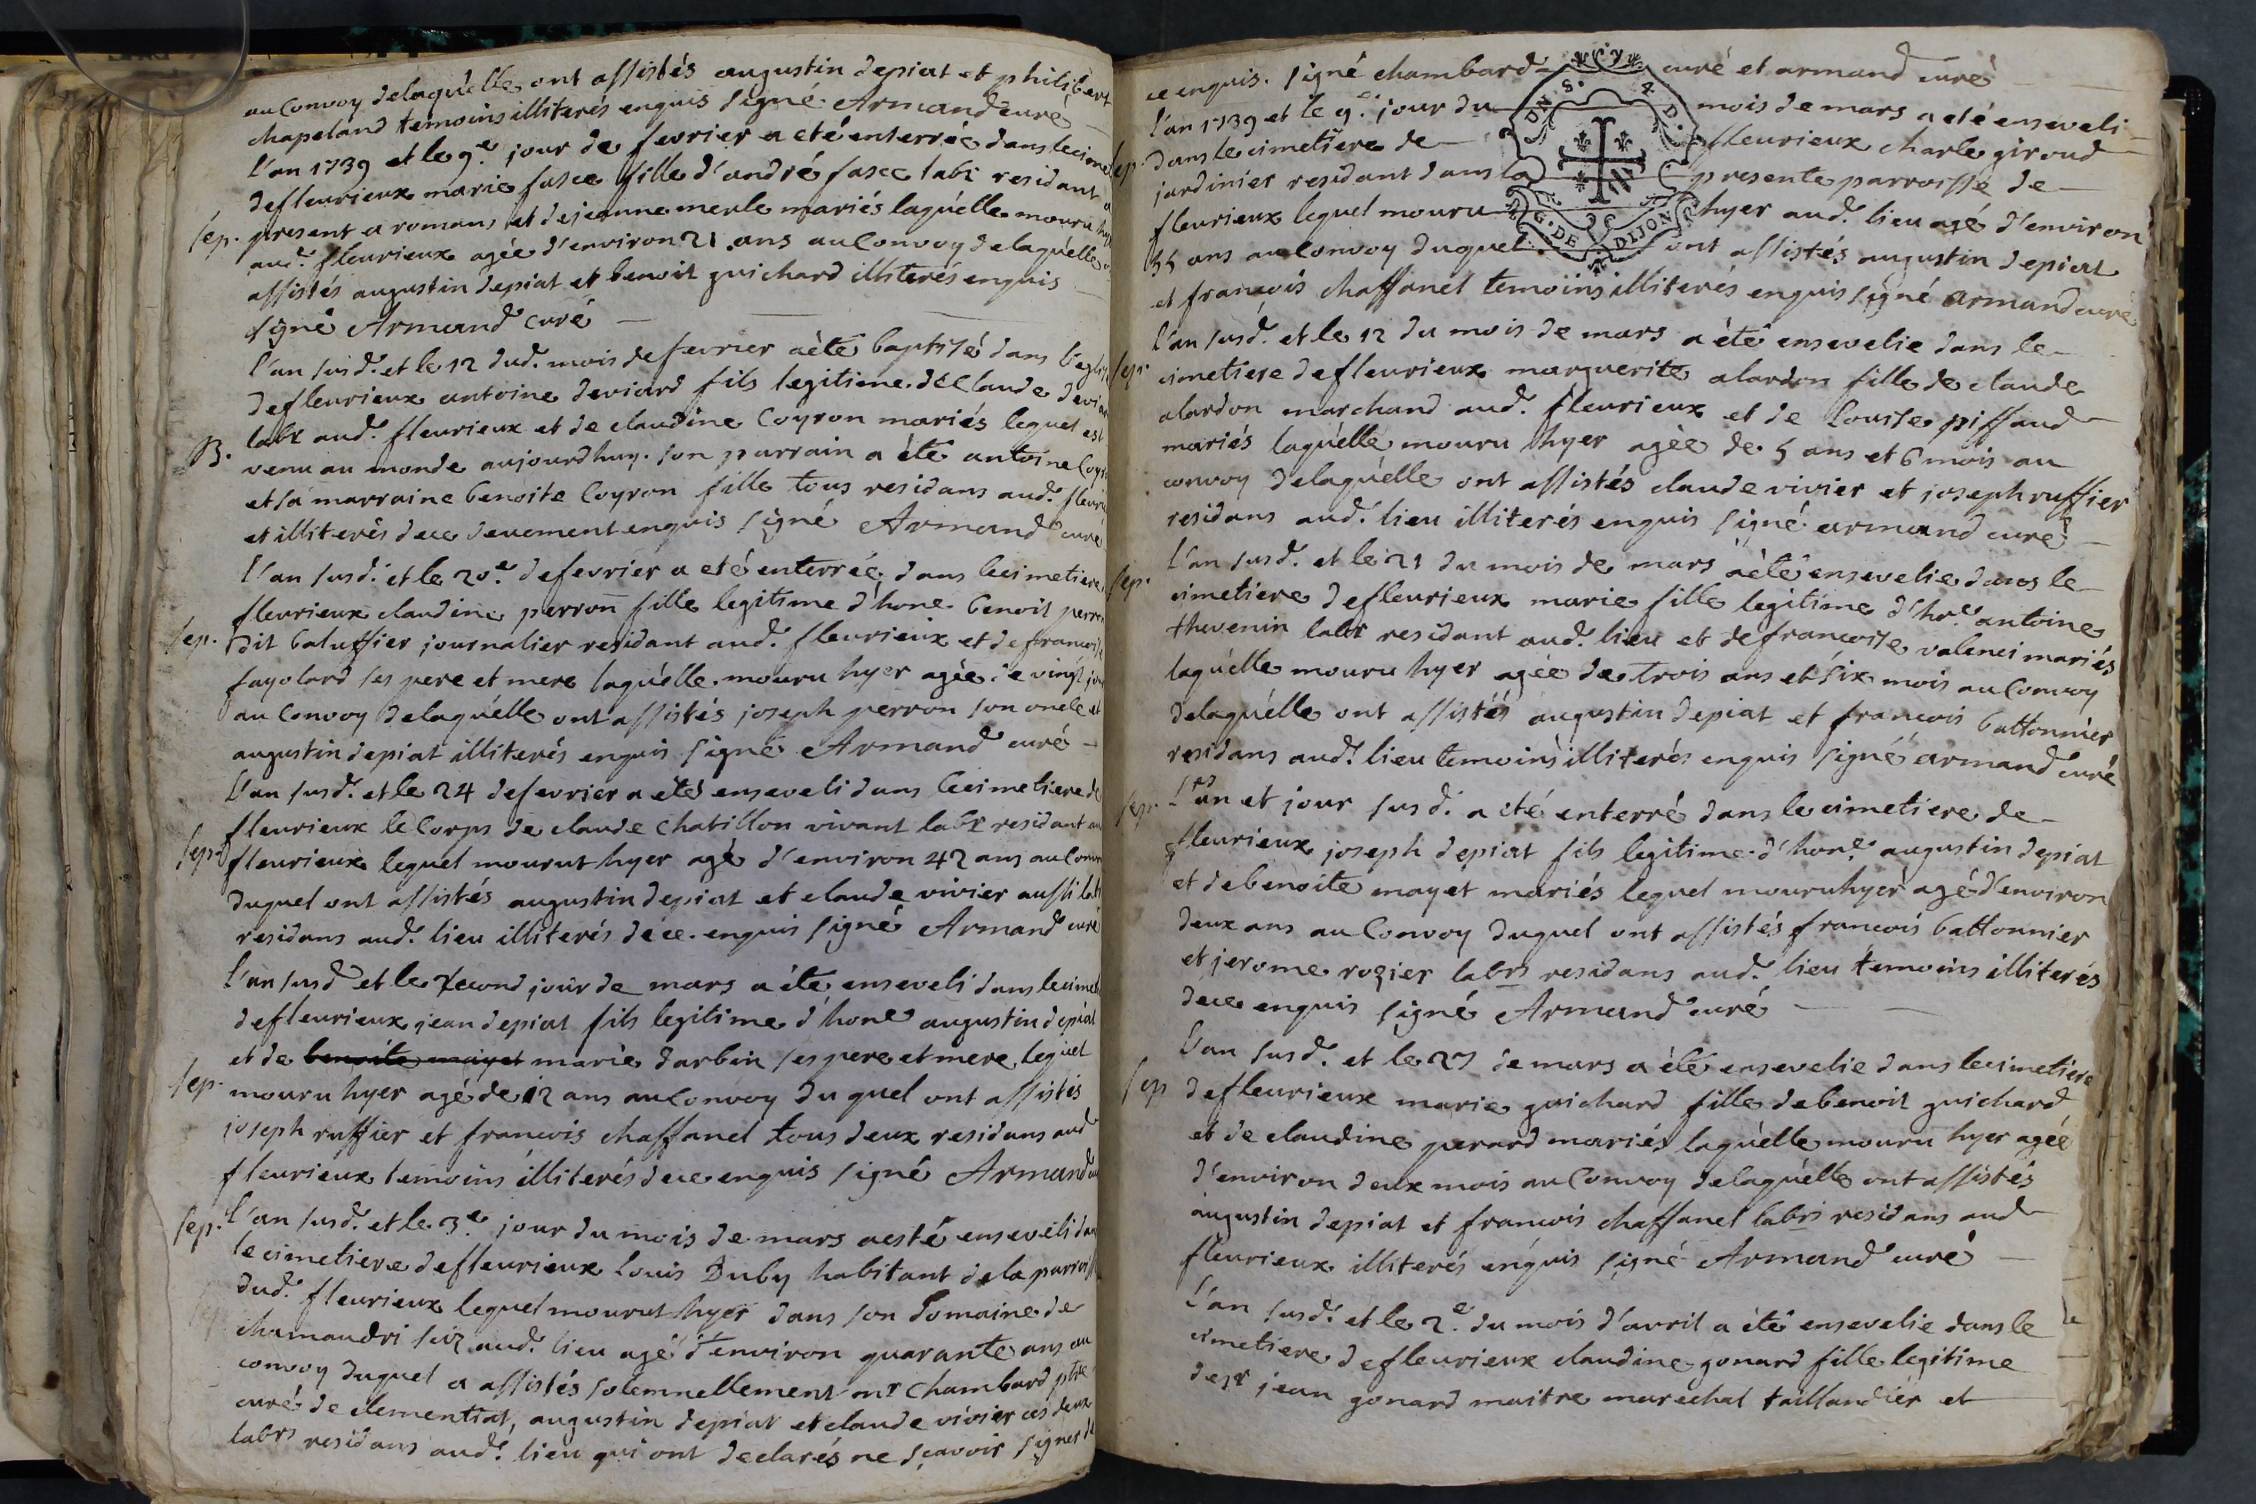 au Convoy delaquélle ont assistés augustin depiat et philibert
chapeland temoins illiterés enquis signé Armand curé
L'an 1739 et le 9.e jour de fevrier a eté enterreé dans le cime
de fleurieux marie fasce fille d'andré fasce labr residant a
sép. present a romans et de jeanne merle mariés laquélle mouru hy
aud. fleurieux agée d'environ 21 ans au Convoy delaquélle
assistés augustin depiat et benoit guichard illiterés enquis
signé Armand curé
L'an susd. et le 12 dud. mois de fevrier a èté baptisé dans l'eglis
de fleurieux antoine deviard fils legitime de claude devia
labr aud. fleurieux et de claudine Coyron mariés lequel est
B. venu au monde aujourdhuy. son parrain a été antoine Coyr
et sa marraine benoite Coyron fille tous residans aud. fleuri
et illiterés de ce deuement enquis signé Armand curé
L'an susd. et le 20.e de fevriér a eté enterrée dans le cimetiere
fleurieux claudine perron fille legitime d'hone benoit perron
sep. dit baluffier journalier residant aud. fleurieux et de francois
fayolard ses pere et mere laquélle mouru hyer agée de vingt jou
au Convoy delaquélle ont assistés joseph perron son oncle et
augustin depiat illiterés enquis signé Armand curé
L'an susd. et le 24 de fevrier a eté enseveli dans le cimetiere de
fleurieux le Corps de claude chatillon vivant labr residant au
sep. fleurieux lequel mourut hyer agé d'environ 42 ans au Conv
duquel ont assistés augustin depiat et claude vivier aussi lab
residans aud. lieu illiterés de ce enquis signé Armand curé
L'an susd et le second jour de mars a été enseveli dans le cimet
de fleurieux jean depiat fils legitime d'hone augustin depiat
et de benoite mayet marie darbin ses pere et mere lequel
sep. mouru hyer agé de 12 ans au Convoy du quel ont assistés
joseph ruffier et francois chaffanel tous deux residans aud
fleurieux temoins illiterés de ce enquis signé Armand
sep. L'an susd. et le 3.e jour du mois de mars a esté enseveli dan
le cimetiere de fleurieux Louis Duby habitant de la parroiss
dud. fleurieux lequel mourut hyer dans son Domaine de
chamandri aud. lieu agé d'environ quarante ans au
convoy duquel a assistés solemnellement mr Chambard ptre
curé de clementiat, augustin depiat et claude vivier ces deux
labrs residans aud. lieu qui ont declarés ne sçavoir signer de
ce enquis. signé chambard curé et armand curé
L'an 1739 et le 9.e jour du mois de mars a eté enseveli
sep. dans le cimetiere de fleurieux charle giroud
jardinier residant dans la presente parroisse de
fleurieux lequel mouru hyer aud. lieu agé d'environ
55 ans au Convoy duquel ont assistés augustin depiat
et francois chaffanel temoins illiterés enquis signé armand curé
G. DE DIJON
L'an susd. et le 12 du mois de mars a été ensevelie dans le
sep. cimetiere de fleurieux marguerite alardon fille de claude
alardon marchand aud. fleurieux et de Louise piffaud
mariés laquélle mouru hyer agèe de 5 ans et 6 mois au
convoy delaquélle ont assistés claude vivier et joseph ruffier
residans aud. lieu illiterés enquis signé armand curé
L'an susd. et le 21 du mois de mars a èté ensevelie dans le
sep. cimetiere de fleurieux marie fille legitime d'hre antoine
thevenin labr residant aud. lieu et de francoise valenci mariés
laquélle mouru hyer agée de trois ans et six mois au Convoy
delaquélle ont assistés augustin depiat et francois battonnier
residans aud. lieu temoins illiterés enquis signé armand curé
sep. L'es an et jour susd. a eté enterré dans le cimetiere de
fleurieux joseph depiat fils legitime d'hone augustin depiat
et de benoite mayet mariés lequel mouru hyer agé d'environ
deux ans au Convoy duquel ont assistés francois battonnier
et jerome rozier labrs residans aud. lieu temoins illiterés
de ce enquis signé Armand curé
L'an susd. et le 27 de mars a èté ensevelie dans le cimetiere
sep de fleurieux marie guichard fille de benoit guichard
et de claudine perard mariés laquélle mouru hyer agée
d'environ deux mois au Convoy delaquélle ont assistés
augustin depiat et francois chaffanel labrs residans aud
fleurieux illiterés enquis signé Armand curé
L'an susd. et le 2.e du mois d'avril a été ensevelie dans le
cimetiere de fleurieux claudine gonard fille legitime
de sr jean gonard maitre marechal taillandiér et